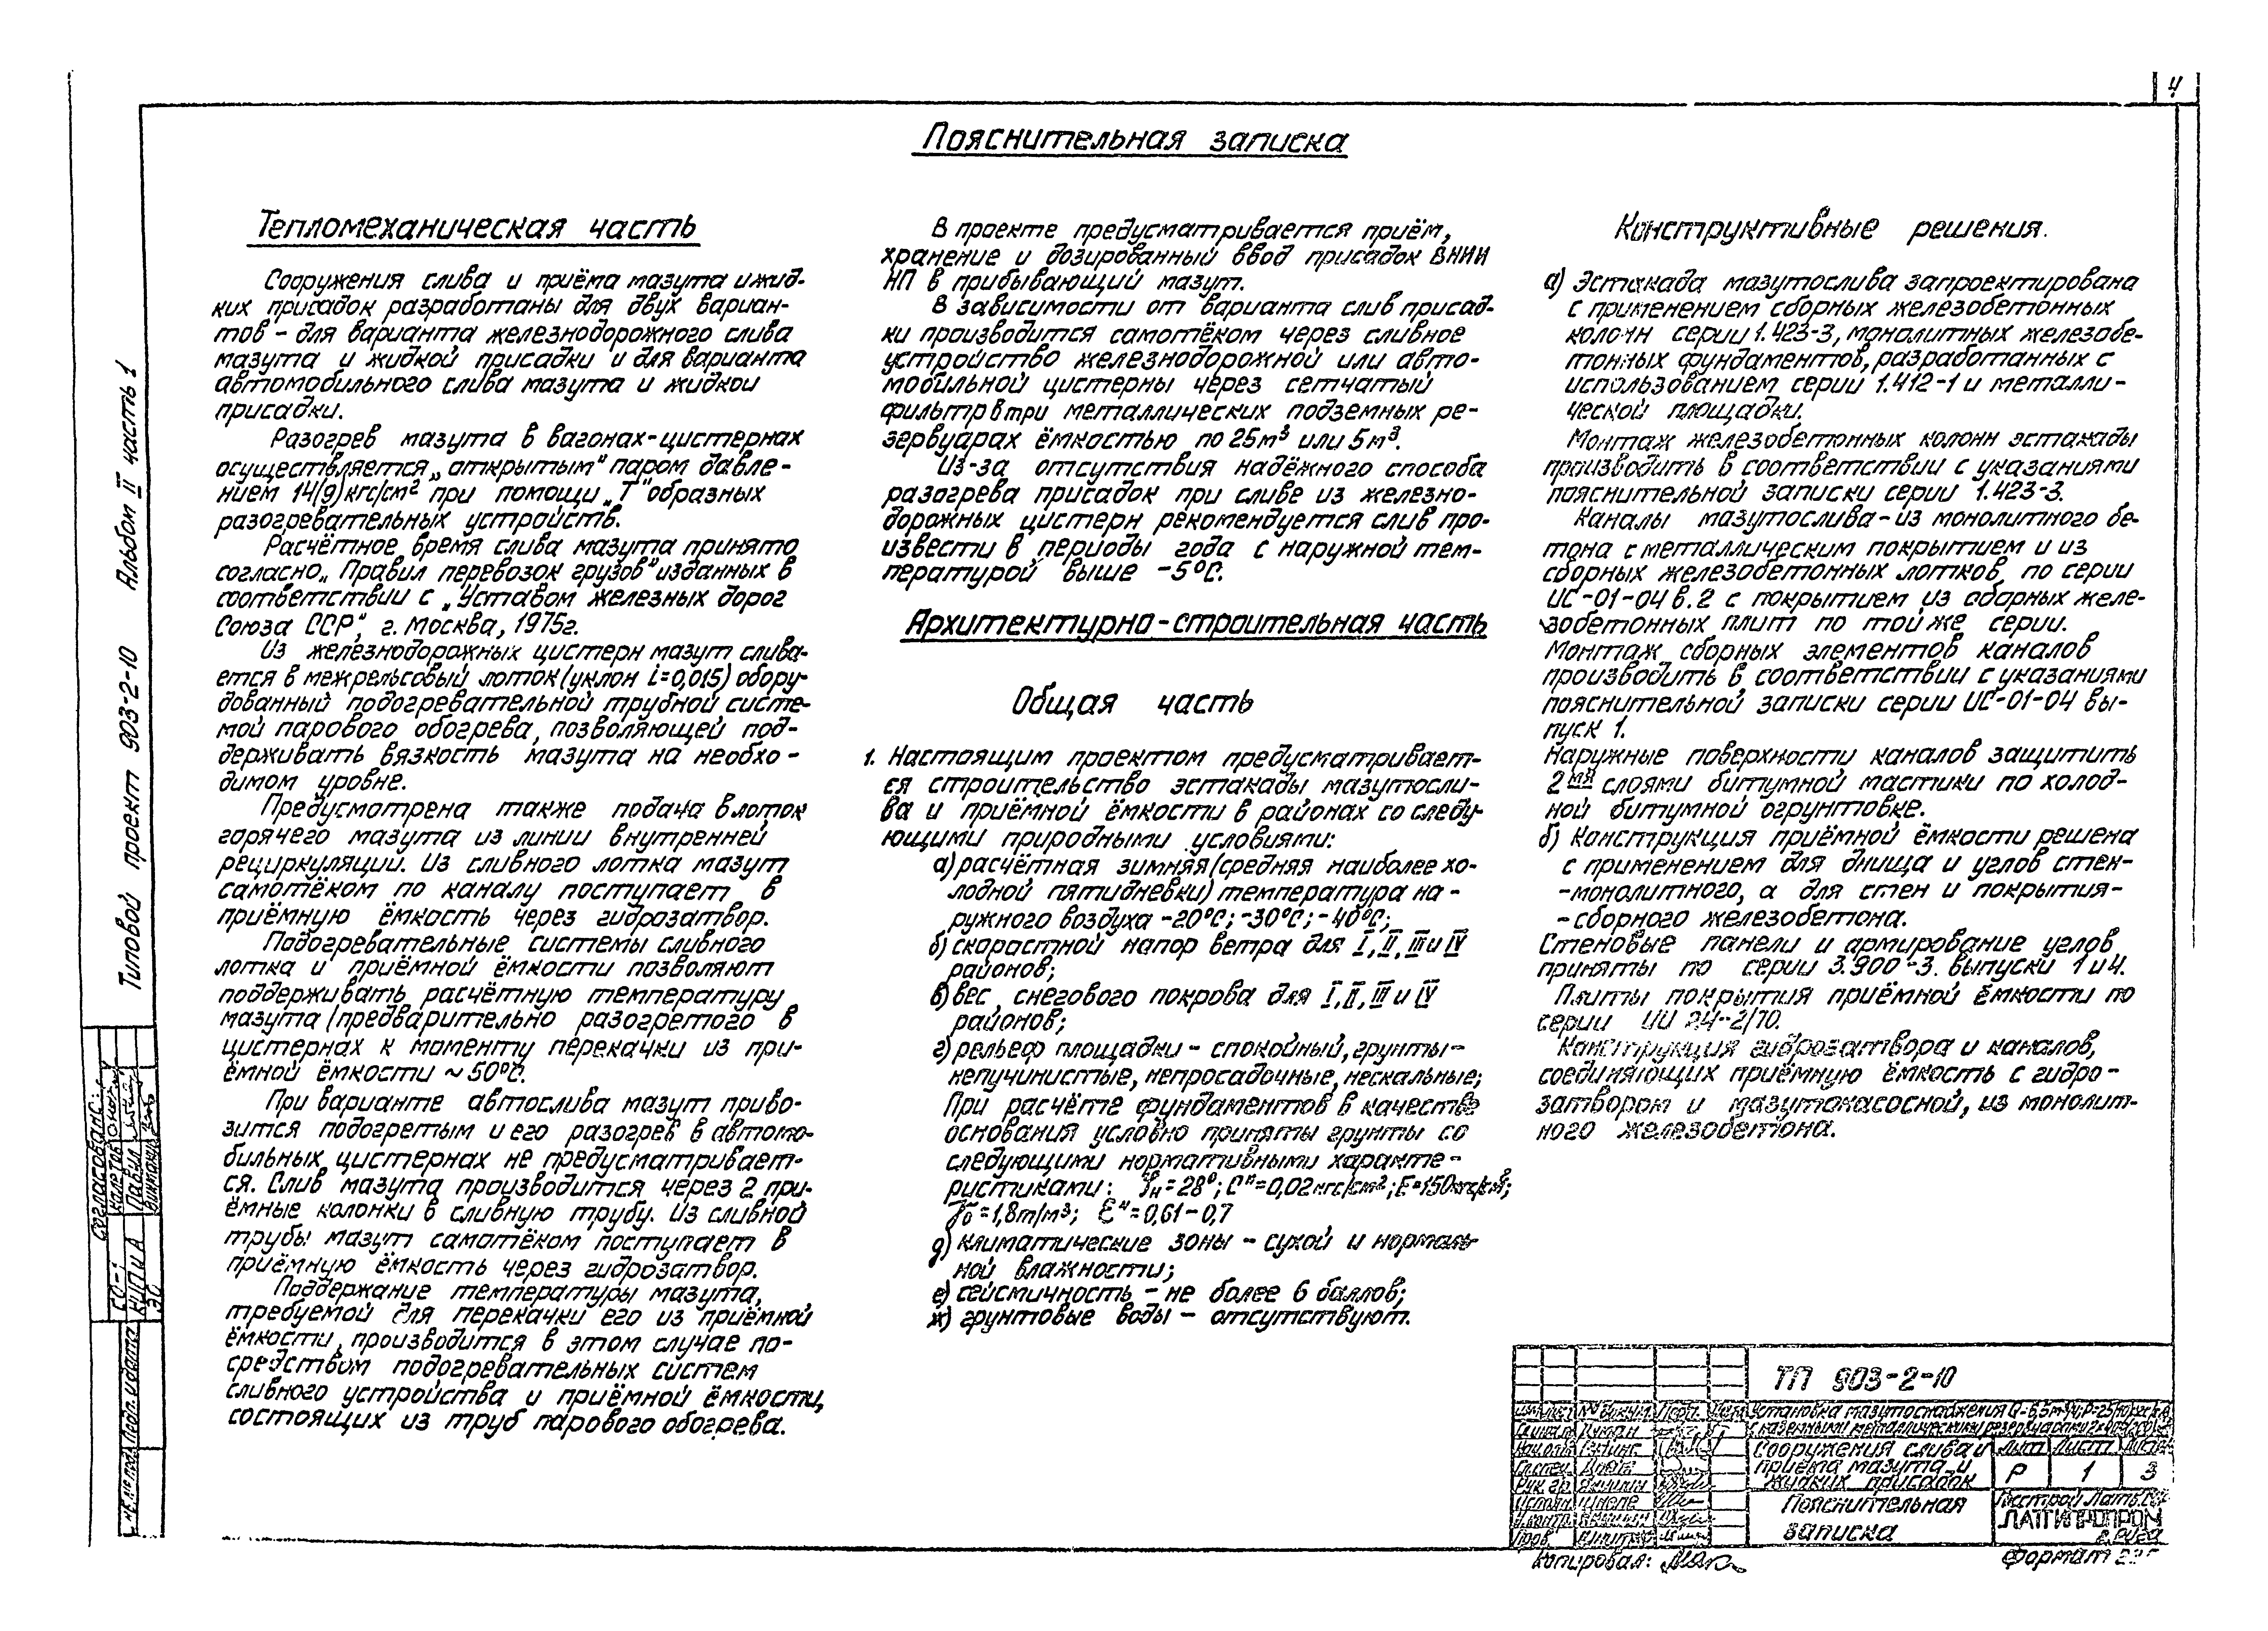 4
Пояснительная записка
Тепломеханическая часть
Сооружения слива и приёма мазута и жид-
ких присадок разработаны для двух вариан-
тов - для варианта железнодорожного слива
мазута и жидкой присадки и для варианта
автомобильного слива мазута и жидкой
присадки.
Разогрев мазута в вагонах-цистернах
осуществляется „открытым" паром давле-
нием 14(9) кгс/см² при помощи „Т"образных
разогревательных устройств.
Расчётное время слива мазута принято
согласно „Правил перевозок грузов" изданных в
соответствии с „Уставом железных дорог
Союза ССР", г. Москва, 1975г.
Из железнодорожных цистерн мазут слива-
ется в межрельсовый лоток (уклон i=0,015) обору-
дованный подогревательной трубной систе-
мой парового обогрева, позволяющей под-
держивать вязкость мазута на необхо-
димом уровне.
Предусмотрена также подача в лоток
горячего мазута из линии внутренней
рециркуляций. Из сливного лотка мазут
самотёком по каналу поступает в
приёмную ёмкость через гидрозатвор.
Подогревательные системы сливного
лотка и приёмной ёмкости позволяют
поддерживать расчётную температуру
мазута (предварительно разогретого в
цистернах к моменту перекачки из при-
ёмной ёмкости ~ 50°С.
При варианте автослива мазут приво-
зится подогретым и его разогрев в автомо-
бильных цистернах не предусматривает-
ся. Слив мазута производится через 2 при-
ёмные колонки в сливную трубу. Из сливной
трубы мазут самотёком поступает в
приёмную ёмкость через гидрозатвор.
Поддержание температуры мазута,
требуемой для перекачки его из приёмной
ёмкости, производится в этом случае по-
средством подогревательных систем
сливного устройства и приёмной ёмкости,
состоящих из труб парового обогрева.
В проекте предусматривается приём,
хранение и дозированный ввод присадок ВНИИ
НП в прибывающий мазут.
В зависимости от варианта слив присад-
ки производится самотёком через сливное
устройство железнодорожной или авто-
мобильной цистерны через сетчатый
фильтр в три металлических подземных ре-
зервуарах ёмкостью по 25м³ или 5м³.
Из-за отсутствия надёжного способа
разогрева присадок при сливе из железно-
дорожных цистерн рекомендуется слив про-
извести в периоды года с наружной тем-
пературой выше -5°С.
Архитектурно-строительная часть
Общая часть
1. Настоящим проектом предусматривает-
ся строительство эстакады мазутосли-
ва и приёмной ёмкости в районах со следу-
ющими природными условиями:
а) расчётная зимняя (средняя наиболее хо-
лодной пятидневки) температура на-
ружного воздуха -20°С; -30°С; -40°С;
б) скорастной напор ветра для I, II, III и IV
районов;
в) вес снегового покрова для I, II, III и IV
районов;
г) рельеф площадки - спокойный, грунты-
непучинистые, непросадочные, нескальные;
При расчёте фундаментов в качестве
основания условно приняты грунты со
следующими нормативными характе-
ристиками: φн=28°; Сн=0,02кгс/см²; Е=150кгс/см²;
γо=1,8т/м³; Ɛн=0,61-0,7
д) климатические зоны - сухой и нормаль-
ной влажности;
е) сейсмичность - не более 6 баллов;
ж) грунтовые воды - отсутствуют.
Конструктивные решения.
а) Эстакада мазутослива запроектирована
с применением сборных железобетонных
колонн серии 1.423-3, монолитных железобе-
тонных фундаментов, разработанных с
использованием серии 1.412-1 и металли-
ческой площадки.
Монтаж железобетонных колонн эстакады
производить в соответствии с указаниями
пояснительной записки серии 1.423-3.
Каналы мазутослива - из монолитного бе-
тона с металлическим покрытием и из
сборных железобетонных лотков по серии
ИС-01-04 в.2 с покрытием из сборных желе-
зобетонных плит по той же серии.
Монтаж сборных элементов каналов
производить в соответствии с указаниями
пояснительной записки серии ИС-01-04 вы-
пуск 1.
Наружные поверхности каналов защитить
2мя слоями битумной мастики по холод-
ной битумной огрунтовке.
б) Конструкция приёмной ёмкости решена
с применением для днища и углов стен-
-монолитного, а для стен и покрытия-
-сборного железобетона.
Стеновые панели и армирование углов
приняты по серии 3.900-3. выпуски 1 и 4.
Плиты покрытия приёмной ёмкости по
серии ИИ 24-2/70.
Конструкция гидрозатвора и каналов,
соединяющих приёмную ёмкость с гидро-
затвором и мазутонасосной, из монолит-
ного железобетона.
Типовой проект 903-2-10 Альбом II часть 1
Согласовано:
СО-1
КИПиА
ЭО
Подп. и дата
ТП 903-2-10
Установка мазутоснабжения
Сооружения слива и
приёма мазута и
жидких присадок
Лит Лист Листов
Р 1 3
Пояснительная
записка
Госстрой Латв.ССР
ЛАТГИПРОПРОМ
г. Рига
Рук. гр.
Исполн.
Н.контр.
Пров.
Копировал:
Формат 22Г